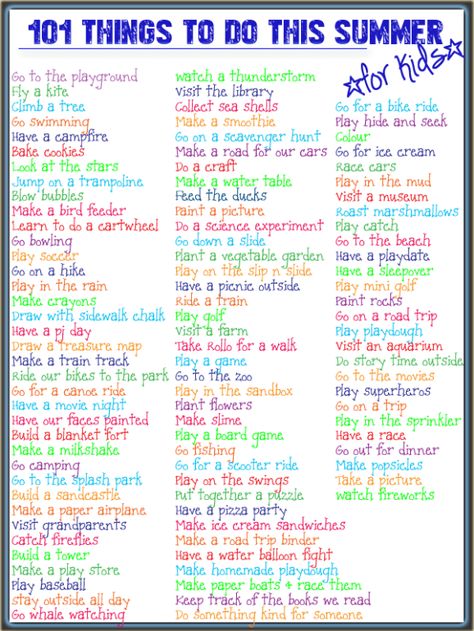 101 THINGS TO DO THIS SUMMER
for kids
Go to the playground
Fly a kite
Climb a tree
Go swimming
Have a campfire
Bake cookies
Look at the stars
Jump on a trampoline
Blow bubbles
Make a bird feeder
Learn to do a cartwheel
Go bowling
Play soccer
Go on a hike
Play in the rain
Make crayons
Draw with sidewalk chalk
Have a pj day
Draw a treasure map
Make a train track
Ride our bikes to the park
Go for a canoe ride
Have a movie night
Have our faces painted
Build a blanket fort
Make a milkshake
Go camping
Go to the splash park
Build a sandcastle
Make a paper airplane
Visit grandparents
Catch fireflies
Build a tower
Make a play store
Play baseball
stay outside all day
Go whale watching
watch a thunderstorm
Visit the library
Collect sea shells
Make a smoothie
Go on a scavenger hunt
Make a road for our cars
Do a craft
Make a water table
Feed the ducks
Paint a picture
Do a science experiment
Go down a slide
Plant a vegetable garden
Play on the slip n slide
Have a picnic outside
Ride a train
Play golf
Visit a farm
Take Rollo for a walk
Play a game
Go to the zoo
Play in the sandbox
Plant flowers
Make slime
Play a board game
Go fishing
Go for a scooter ride
Play on the swings
Put together a puzzle
Have a pizza party
Make ice cream sandwiches
Make a road trip binder
Have a water balloon fight
Make homemade playdough
Make paper boats & race them
Keep track of the books we read
Do something kind for someone
Go for a bike ride
Play hide and seek
Colour
Go for ice cream
Race cars
Play in the mud
Visit a museum
Roast marshmallows
Play catch
Go to the beach
Have a playdate
Have a sleepover
Play mini golf
Paint rocks
Go on a road trip
Play playdough
Visit an aquarium
Do story time outside
Go to the movies
Play superheros
Go on a trip
Play in the sprinkler
Have a race
Go out for dinner
Make popsicles
Take a picture
watch fireworks